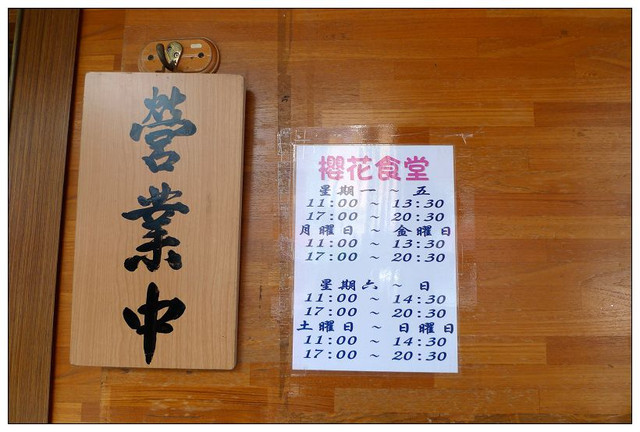 營業中
櫻花食堂
星期一 ~ 五
11:00 ~ 13:30
17:00 ~ 20:30
月曜日 ~ 金曜日
11:00 ~ 13:30
17:00 ~ 20:30
星期六 ~ 日
11:00 ~ 14:30
17:00 ~ 20:30
土曜日 ~ 日曜日
11:00 ~ 14:30
17:00 ~ 20:30